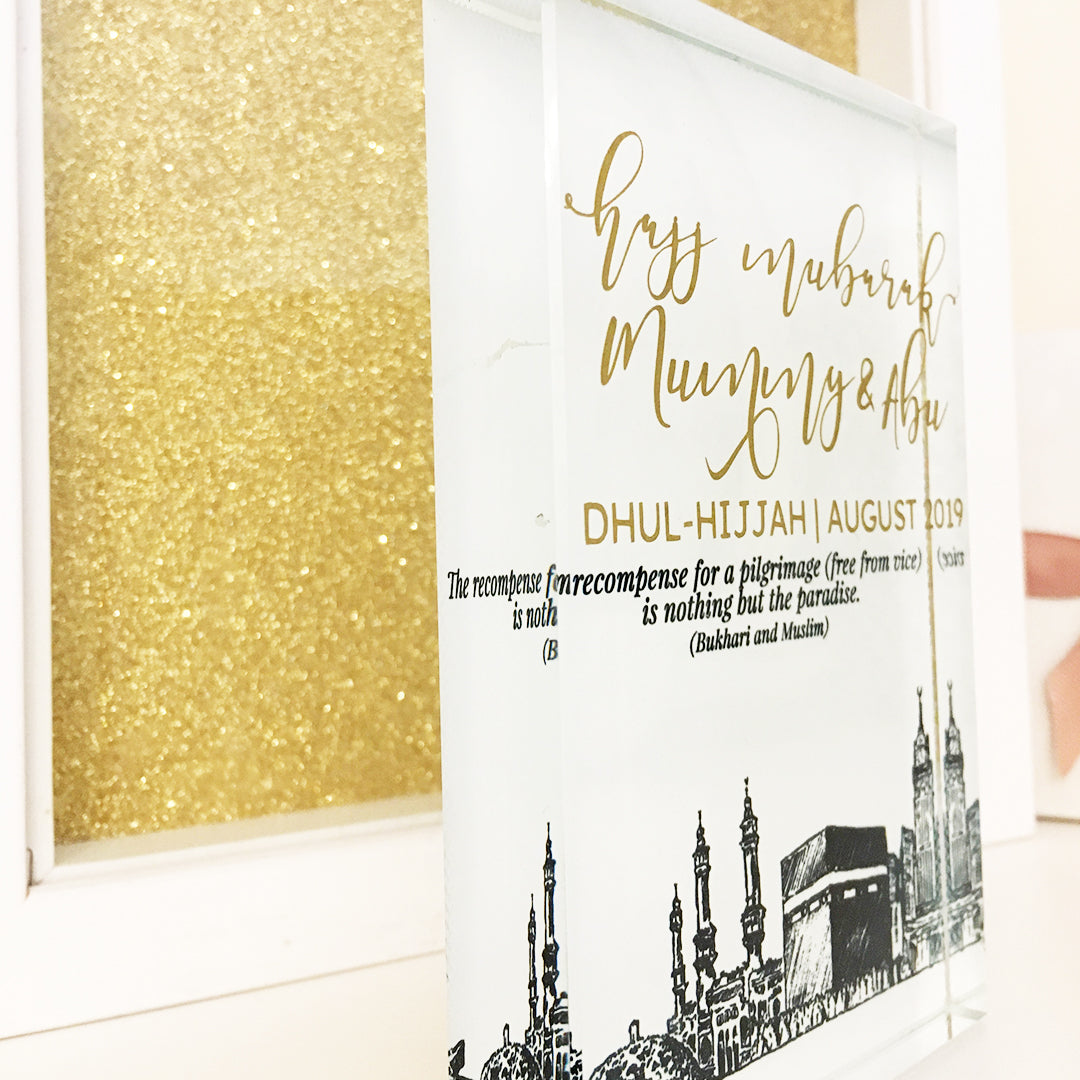 hajj mubarak
Mummy & Abu
DHUL-HIJJAH | AUGUST 2019
The recompense for a pilgrimage (free from vice)
is nothing but the paradise.
(Bukhari and Muslim)